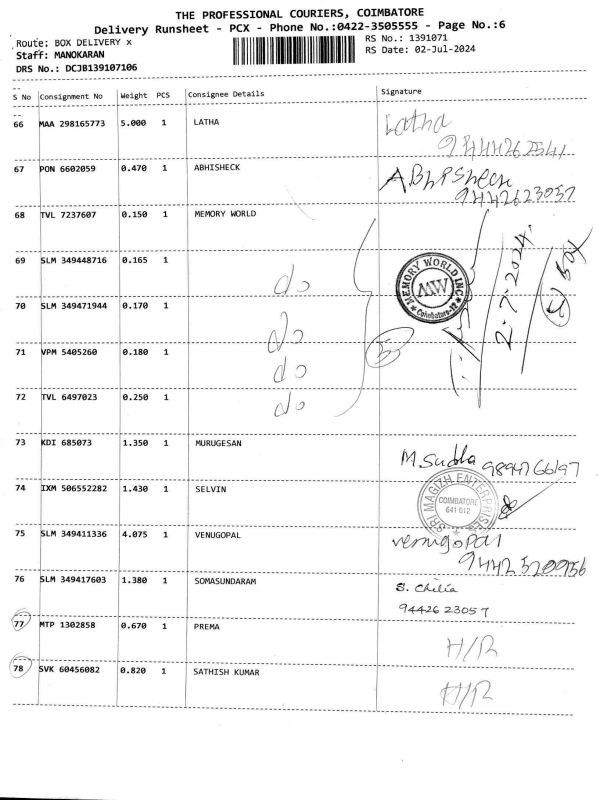 THE PROFESSIONAL COURIERS, COIMBATORE
Delivery Runsheet - PCX - Phone No.:0422-3505555 - Page No.:6
Route: BOX DELIVERY x RS No.: 1391071
Staff: MANOKARAN RS Date: 02-Jul-2024
DRS No.: DCJB139107106
S No Consignment No Weight PCS Consignee Details Signature
66 MAA 298165773 5.000 1 LATHA Latha
67 PON 6602059 0.470 1 ABHISHECK
9442623057
68 TVL 7237607 0.150 1 MEMORY WORLD
69 SLM 349448716 0.165 1 do
MEMORY WORLD INC
MW
Coimbatore-12
2.7.2024.
5 Box
70 SLM 349471944 0.170 1 do
71 VPM 5405260 0.180 1 do
5
72 TVL 6497023 0.250 1 do
73 KDI 685073 1.350 1 MURUGESAN M. Sudha
74 IXM 506552282 1.430 1 SELVIN
SRI MAGIZH ENTERPRISES
COIMBATORE
641 012
75 SLM 349411336 4.075 1 VENUGOPAL venugopal
76 SLM 349417603 1.380 1 SOMASUNDARAM
9442623057
77 MTP 1302858 0.670 1 PREMA H/R
78 SVK 60456082 0.820 1 SATHISH KUMAR H/R